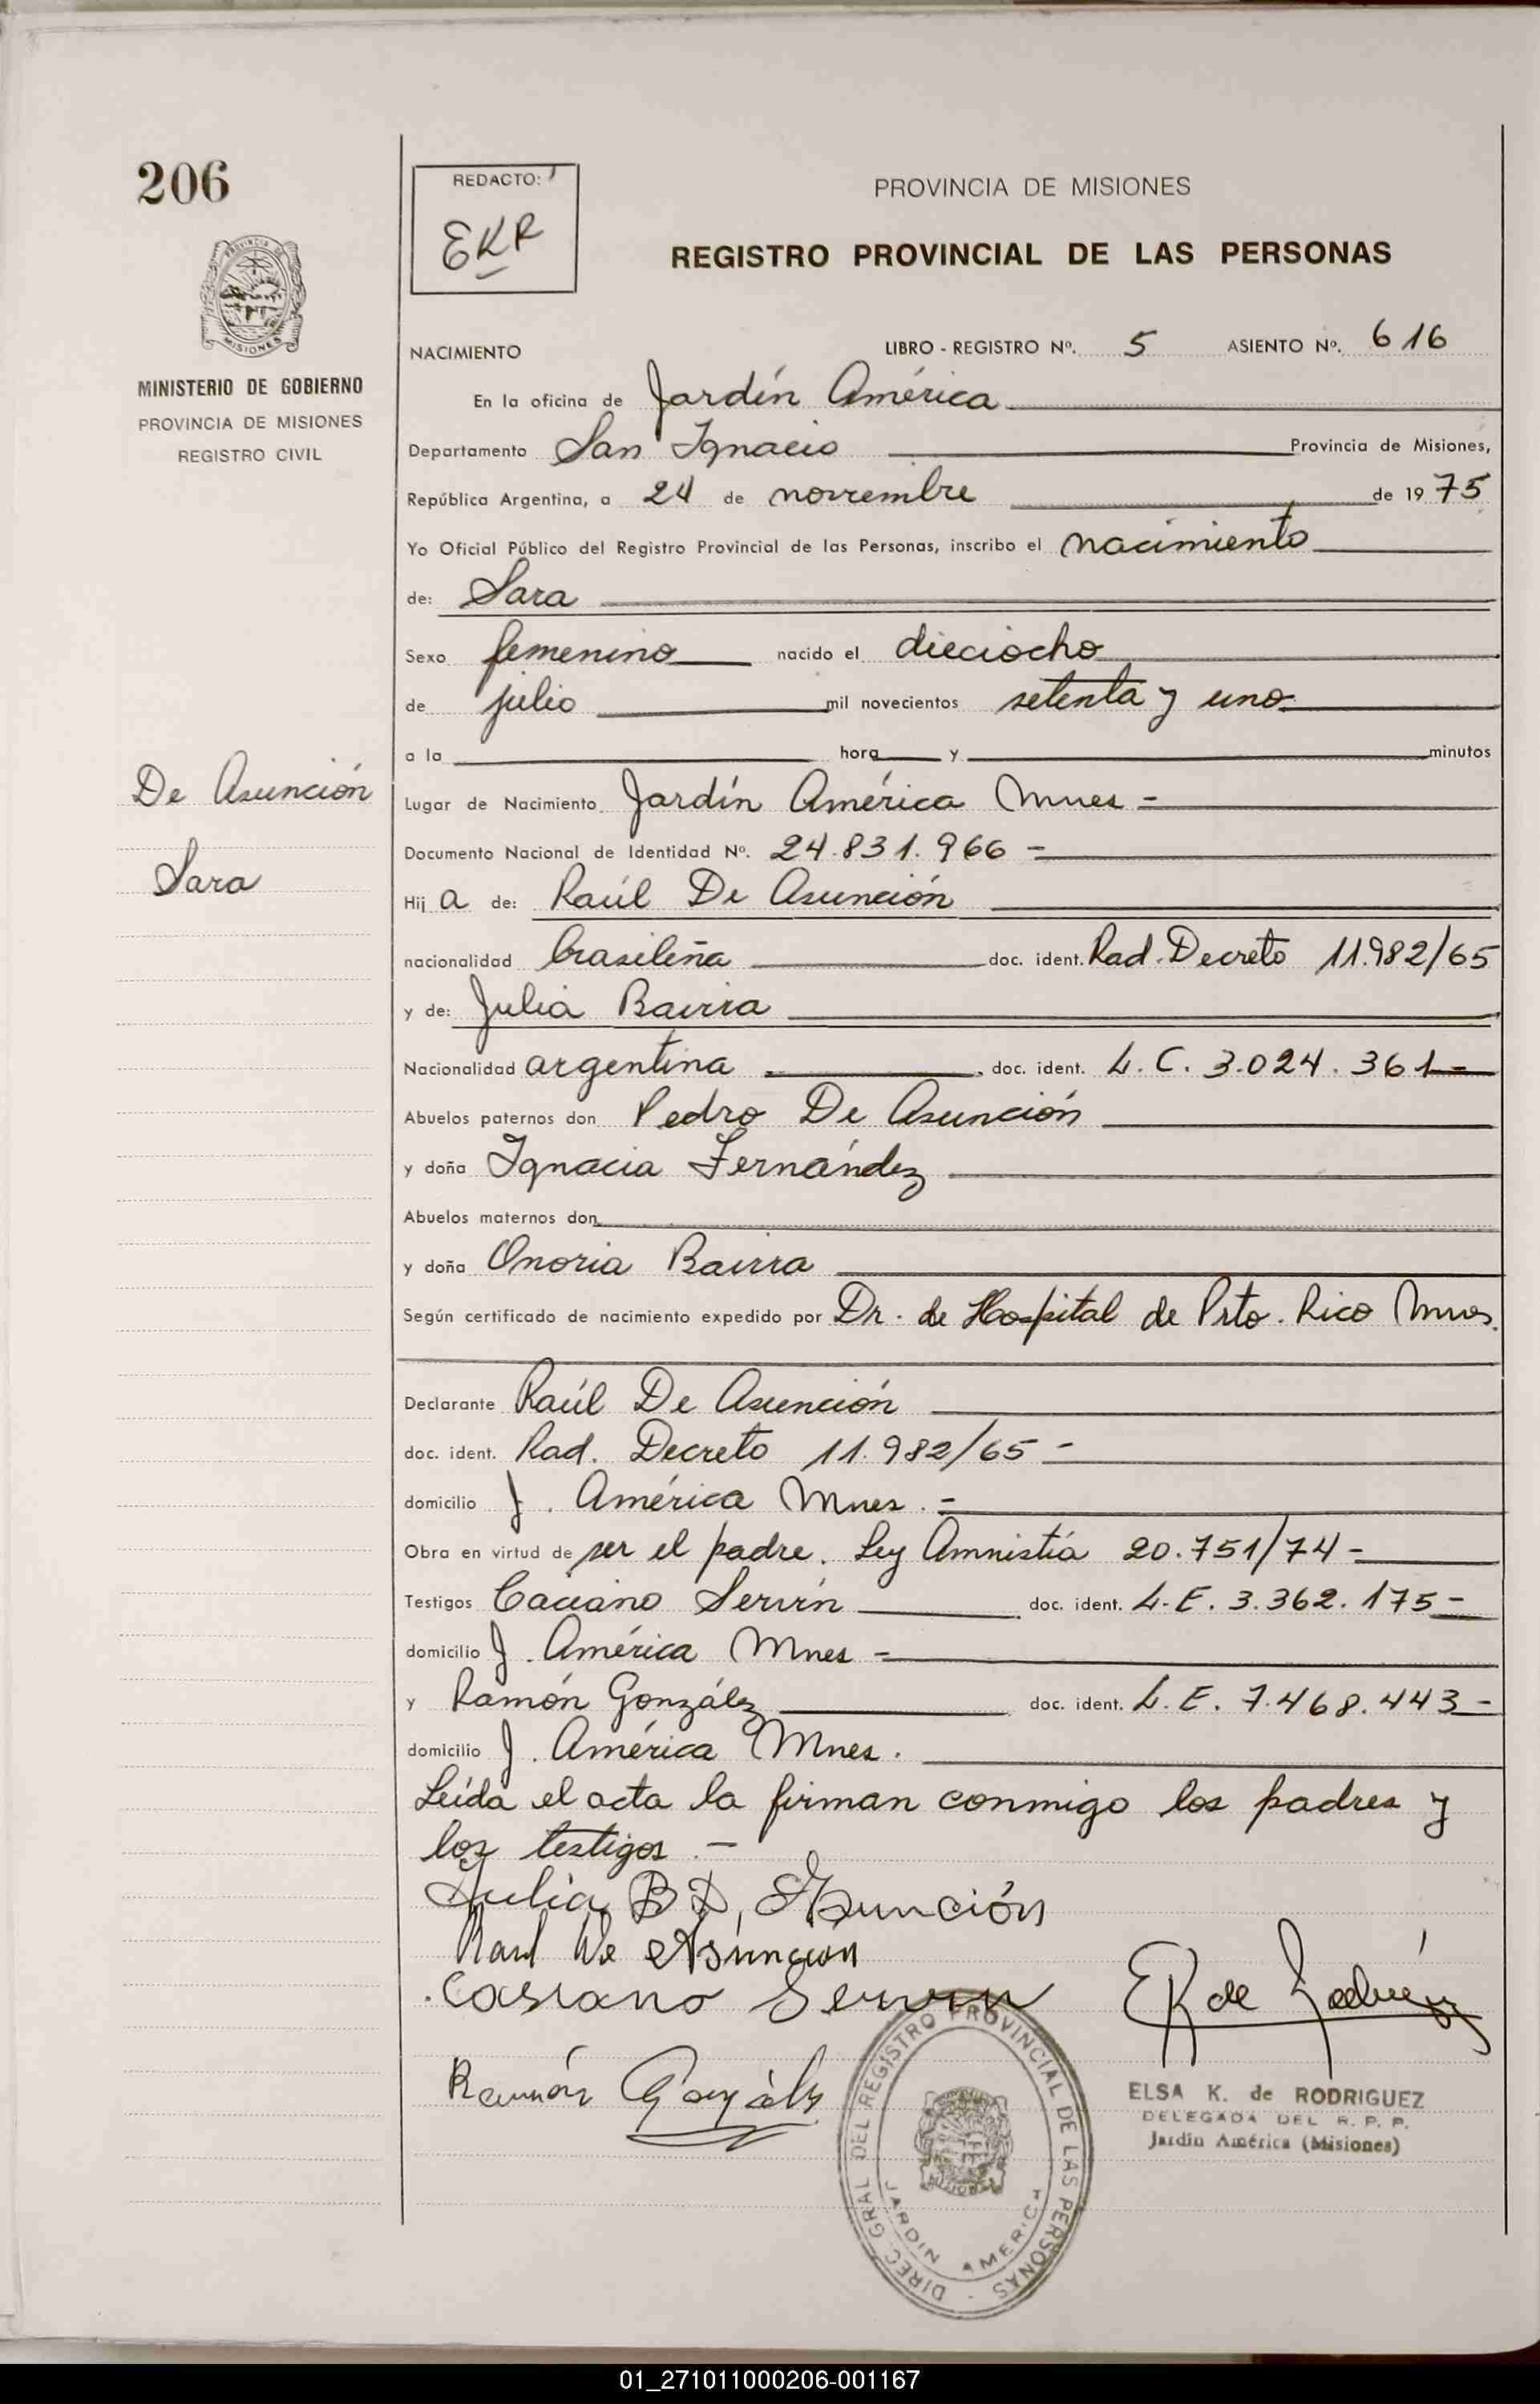 206
REDACTO:
EKR
PROVINCIA DE MISIONES
REGISTRO PROVINCIAL DE LAS PERSONAS
MINISTERIO DE GOBIERNO
PROVINCIA DE MISIONES
REGISTRO CIVIL
NACIMIENTO LIBRO - REGISTRO Nº. 5 ASIENTO Nº. 616
En la oficina de Jardín América
Departamento San Ignacio Provincia de Misiones,
República Argentina, a 24 de noviembre de 1975
Yo Oficial Público del Registro Provincial de las Personas, inscribo el nacimiento
de: Sara
Sexo femenino nacido el dieciocho
de julio mil novecientos setenta y uno
a la hora y minutos
De Asunción
Sara
Lugar de Nacimiento Jardín América Mnes -
Documento Nacional de Identidad Nº. 24.831.966 -
Hij a de: Raúl De Asunción
nacionalidad brasileña doc. ident. Rad. Decreto 11.982/65
y de: Julia
Nacionalidad argentina doc. ident. L.C. 3.024.361 -
Abuelos paternos don Pedro De Asunción
y doña Ignacia Fernández
Abuelos maternos don
y doña Onoria
Según certificado de nacimiento expedido por Dr. de Hospital de Prto. Rico Mnes.
Declarante Raúl De Asunción
doc. ident. Rad. Decreto 11.982/65 -
domicilio J. América Mnes. -
Obra en virtud de ser el padre. Ley Amnistía 20.751/74 -
Testigos Servín doc. ident. L.E. 3.362.175 -
domicilio J. América Mnes -
y Ramón González doc. ident. L.E. 7.468.443 -
domicilio J. América Mnes.
Leída el acta la firman conmigo los padres y
los testigos. -
Julia B D, Asunción
Raul De Asuncion
Casiano Servin
EK de Rodríguez
Ramón González
ELSA K. de RODRIGUEZ
DELEGADA DEL R. P. P.
Jardín América (Misiones)
DIREC. GRAL DEL REGISTRO PROVINCIAL DE LAS PERSONAS -
JARDIN AMERICA
01_271011000206-001167